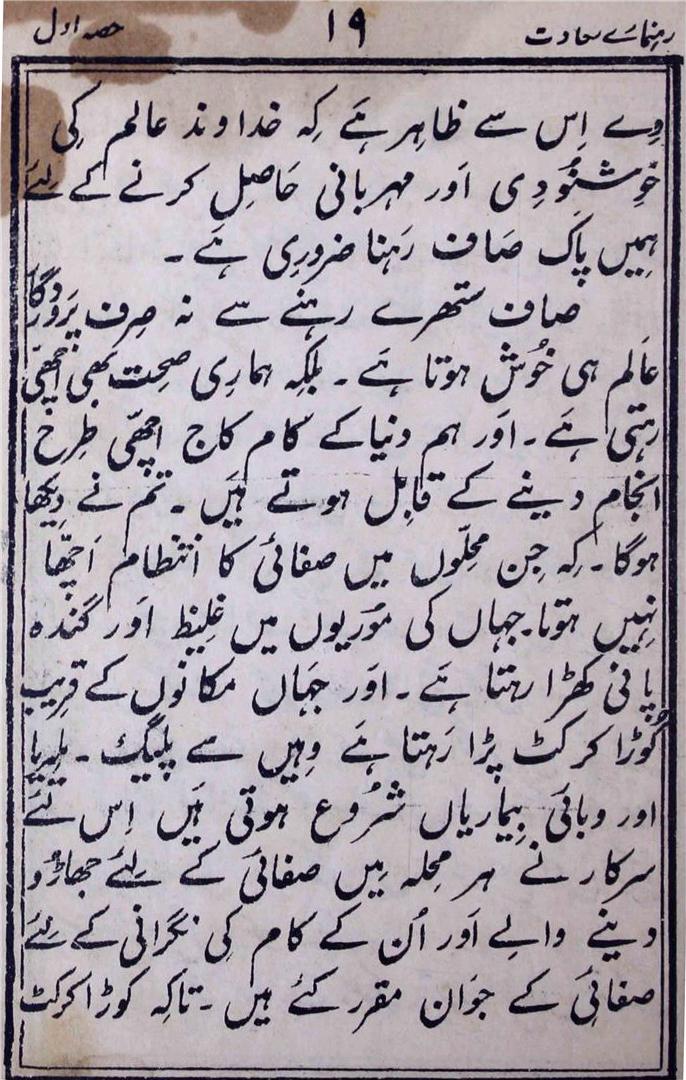 رہنمائے سعادت ۱۹ حصہ اول
دے اِس سے ظاہر ہَے کِہ خداوند عالم کی
خُوشنُودِی اَور مہربانی حَاصِل کرنے کے لِئَے
ہمِیں پاک صَاف رَہنا ضرورِی ہَے ۔
صاف ستھرے رہنے سے نہ صِرف پَروردگار
عَالَم ہی خُوش ہوتا ہَے ۔ بلکِہ ہماری صحِت بھی اچھّی
رہتی ہَے ۔ اَور ہم دنیا کے کام کاج اچھّی طرح
انجام دینے کے قابِل ہوتے ہَیں ۔ تم نے دیکھا
ہوگا ۔ کہ جِن محلّوں میں صفائی کا انتظام اَچھّا
نہِیں ہوتا ۔ جہاں کی مورَیوں میں غلِیظ اَور گندہ
پانی کھڑا رہتا ہَے ۔ اَور جہَاں مکانوں کے قرِیب
کُوڑا کرکٹ پڑا رَہتا ہَے وہِیں سے پلیگ ۔ ملیریا
اور وبائی بِیماریاں شرُوع ہوتی ہَیں اِس لئَے
سرکار نے ہر محلہ میں صفائی کے لِئَے جھاڑُو
دینے والے اَور اُن کے کام کی نگرانی کے لِئَے
صفائِی کے جوَان مقرر کئَے ہیں ۔ تاکِہ کوڑا کرکٹ